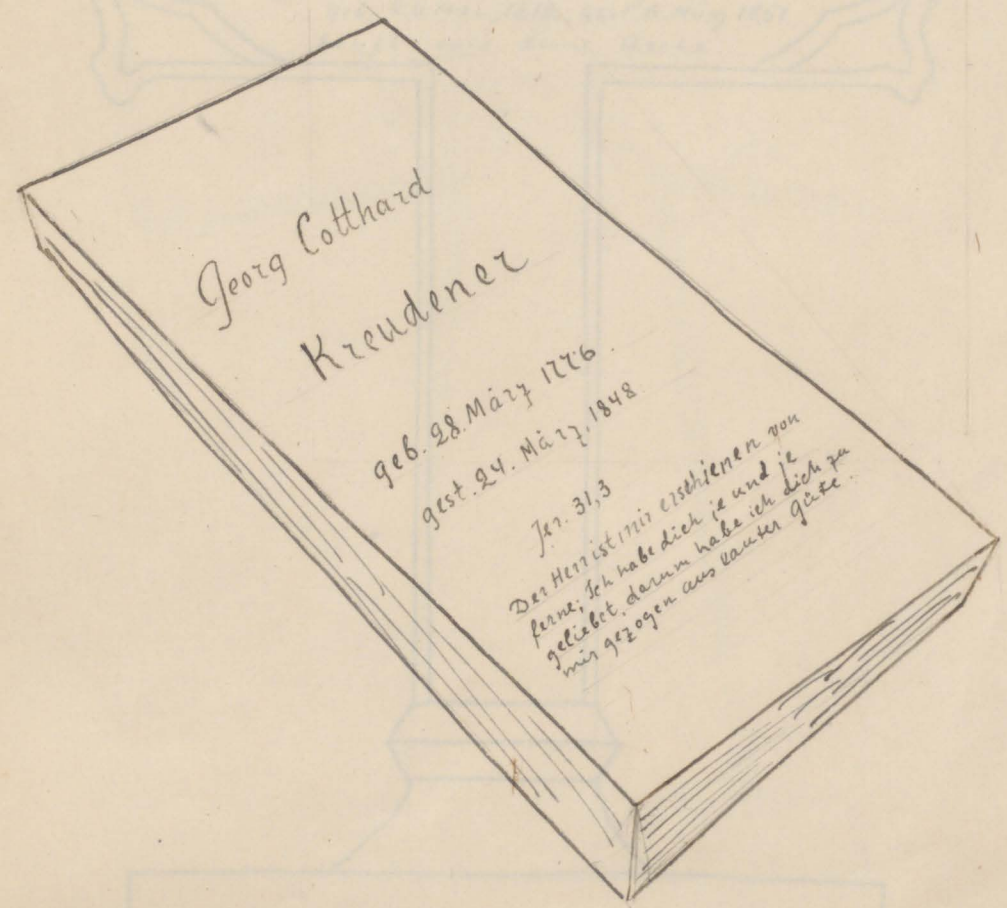 Georg Cotthard
Kreudener
geb. 28. März 1776.
gest. 24. März, 1848
Jer. 31,3
Der Herr ist mir erschienen von
ferne; Ich habe dich je und je
geliebet, darum habe ich dich zu
mir gezogen aus lauter Güte.